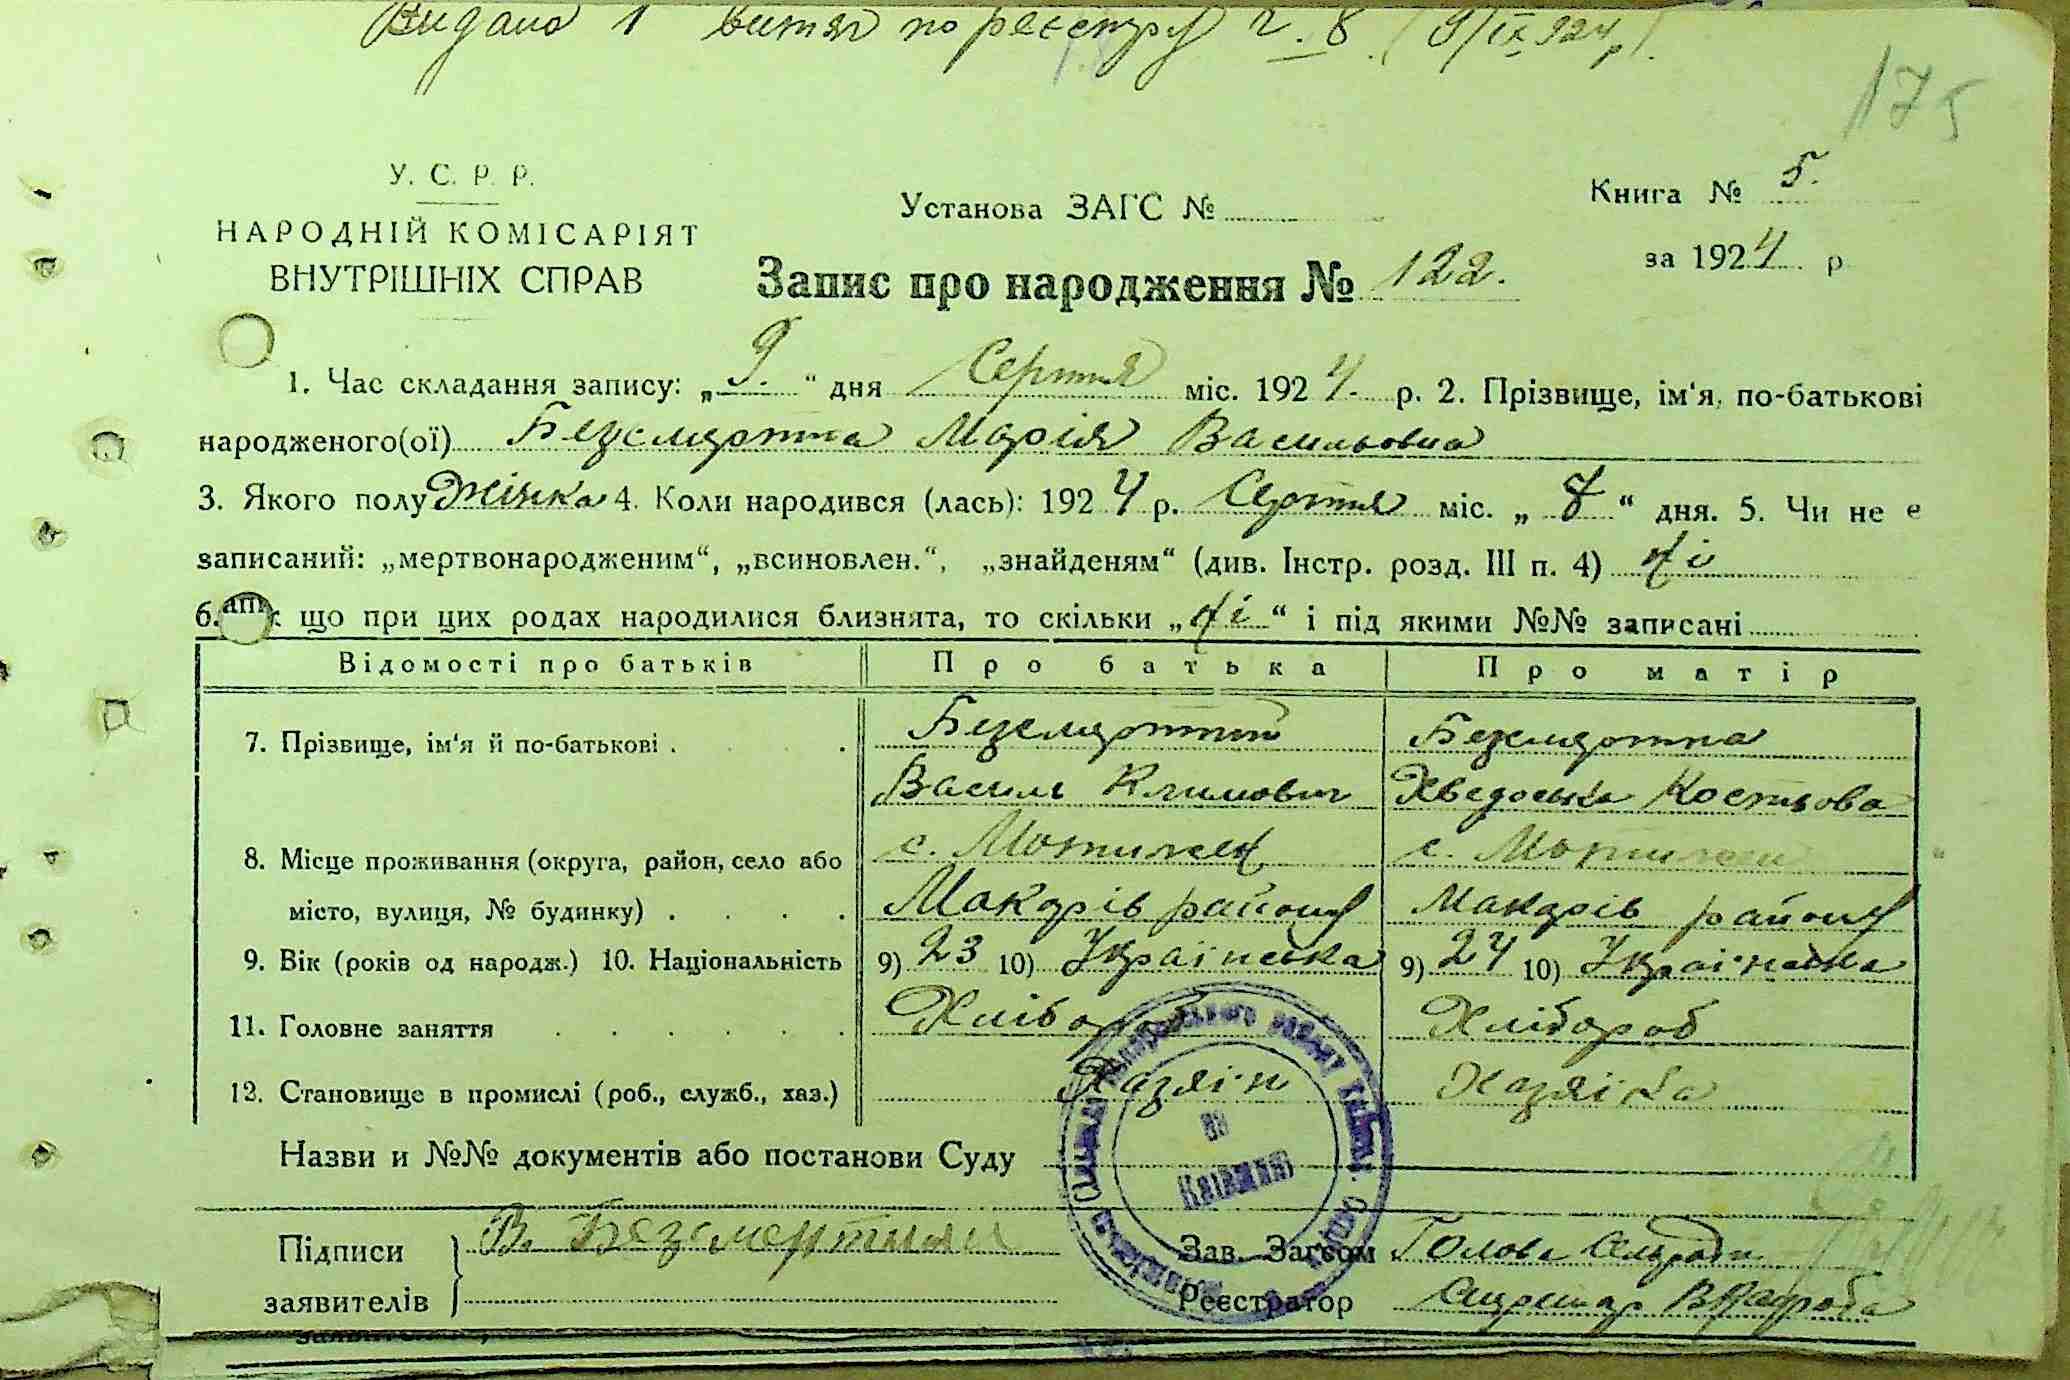 Видано 1 витяг по реєстру ч. 8 (9/IX 924 р.)
175
У. С. Р. Р.
НАРОДНІЙ КОМІСАРІЯТ
ВНУТРІШНІХ СПРАВ
Установа ЗАГС №
Книга № 5.
за 1924 р
Запис про народження № 122.
1. Час складання запису: „9.“ дня Серпня міс. 1924. р. 2. Прізвище, ім'я, по-батькові
народженого(ої) Безсмертна Марія Васильовна
3. Якого полу Жінка 4. Коли народився (лась): 1924 р. Серпня міс. „8“ дня. 5. Чи не є
записаний: „мертвонародженим“, „всиновлен.“, „знайденям“ (див. Інстр. розд. III п. 4) Ні
6. що при цих родах народилися близнята, то скільки „Ні“ і під якими №№ записані
Відомості про батьків Про батька Про матір
7. Прізвище, ім'я й по-батькові . Безсмертний Безсмертна
Василь Климович Хведоська Костьова
8. Місце проживання (округа, район, село або с. Мотижен с. Мотижин
місто, вулиця, № будинку) . Макарів району Макарів району
9. Вік (років од народж.) 10. Національність 9) 23 10) Українська 9) 24 10) Українська
11. Головне заняття Хлібороб Хлібороб
12. Становище в промислі (роб., служб., хаз.) Хазяїн Хазяїка
Назви и №№ документів або постанови Суду
Підписи В. Безсмертний Зав. Загсом Голова Сельради
заявителів Реєстратор Секретар